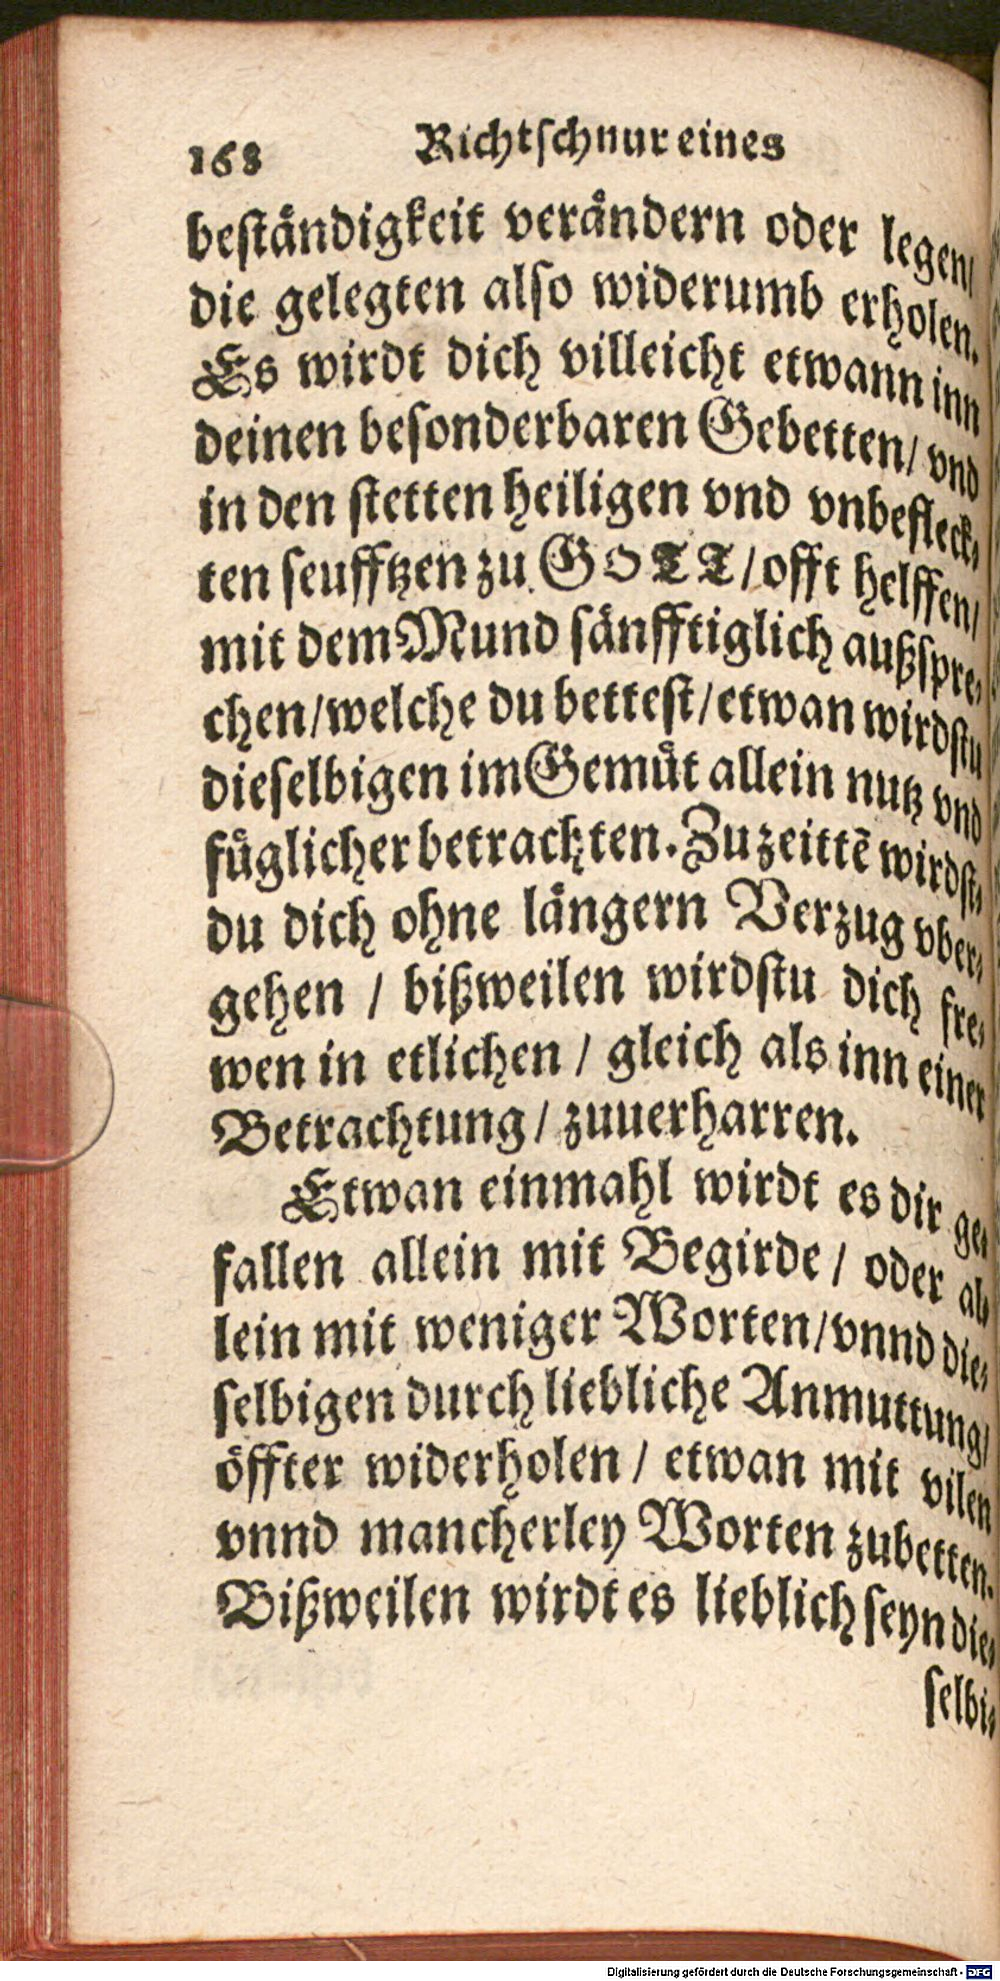 168 Richtschnur eines
beständigkeit verändern oder legen/
die gelegten also widerumb erholen.
Es wirdt dich villeicht etwann inn
deinen besonderbaren Gebetten/ vnd
in den stetten heiligen vnd vnbefleck-
ten seufftzen zu GOTT/ offt helffen/
mit dem Mund sänfftiglich außspre-
chen/welche du bettest/etwan wirdstu
dieselbigen im Gemüt allein nutz vnd
füglicher betrachten. Zu zeittẽ wirdst-
du dich ohne längern Verzug vber-
gehen / bißweilen wirdstu dich fre-
wen in etlichen / gleich als inn einer
Betrachtung / zuuerharren.
Etwan einmahl wirdt es dir ge-
fallen allein mit Begirde / oder al-
lein mit weniger Worten/vnnd die-
selbigen durch liebliche Anmuttung/
öffter widerholen / etwan mit vilen
vnnd mancherley Worten zubetten.
Bißweilen wirdt es lieblich seyn die-
selbi-
Digitalisierung gefördert durch die Deutsche Forschungsgemeinschaft - DFG